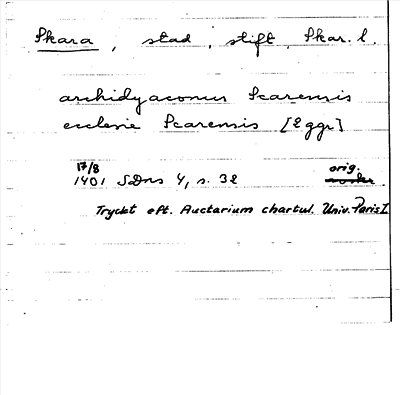 Skara, stad, stift, Skar. l.
archidyaconus Scarensis
ecclesie Scarensis [2 ggr]
17/8
1401 SDns 4, s. 32 orig.
Tryckt eft. Auctarium chartul. Univ. Paris I